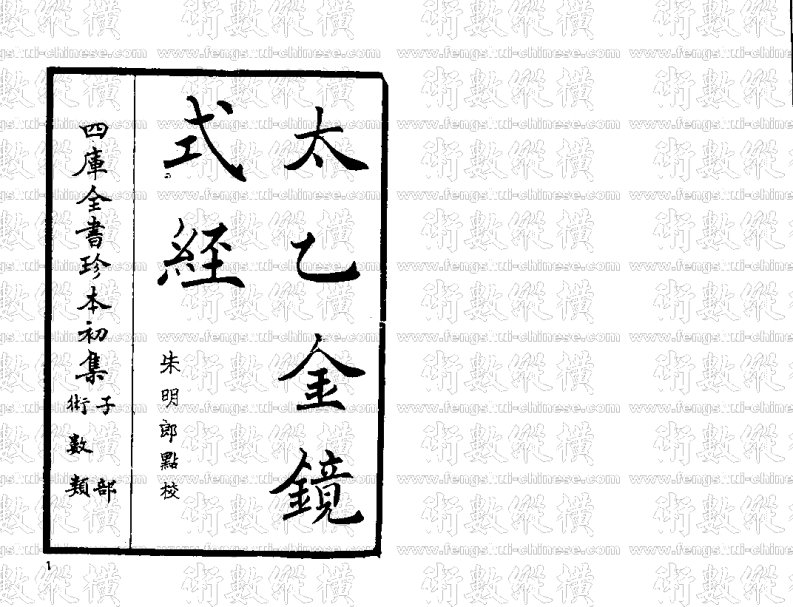 太乙金鏡
式經
朱明郎點校
四庫全書珍本初集
子部
術數類
1
術數縱橫
www.fengshui-chinese.com